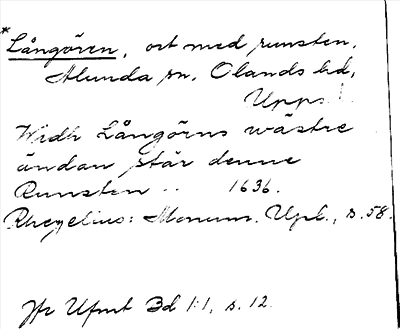 *Långören, ort med runsten,
Alunda sn, Olands hd,
Upps.
Widh Långörns wästre
ändan står denne
Runsten .. 1636.
Rhezelius: Monum. Upl., s. 58.
Jfr Ufmt Bd 1:1, s. 12.